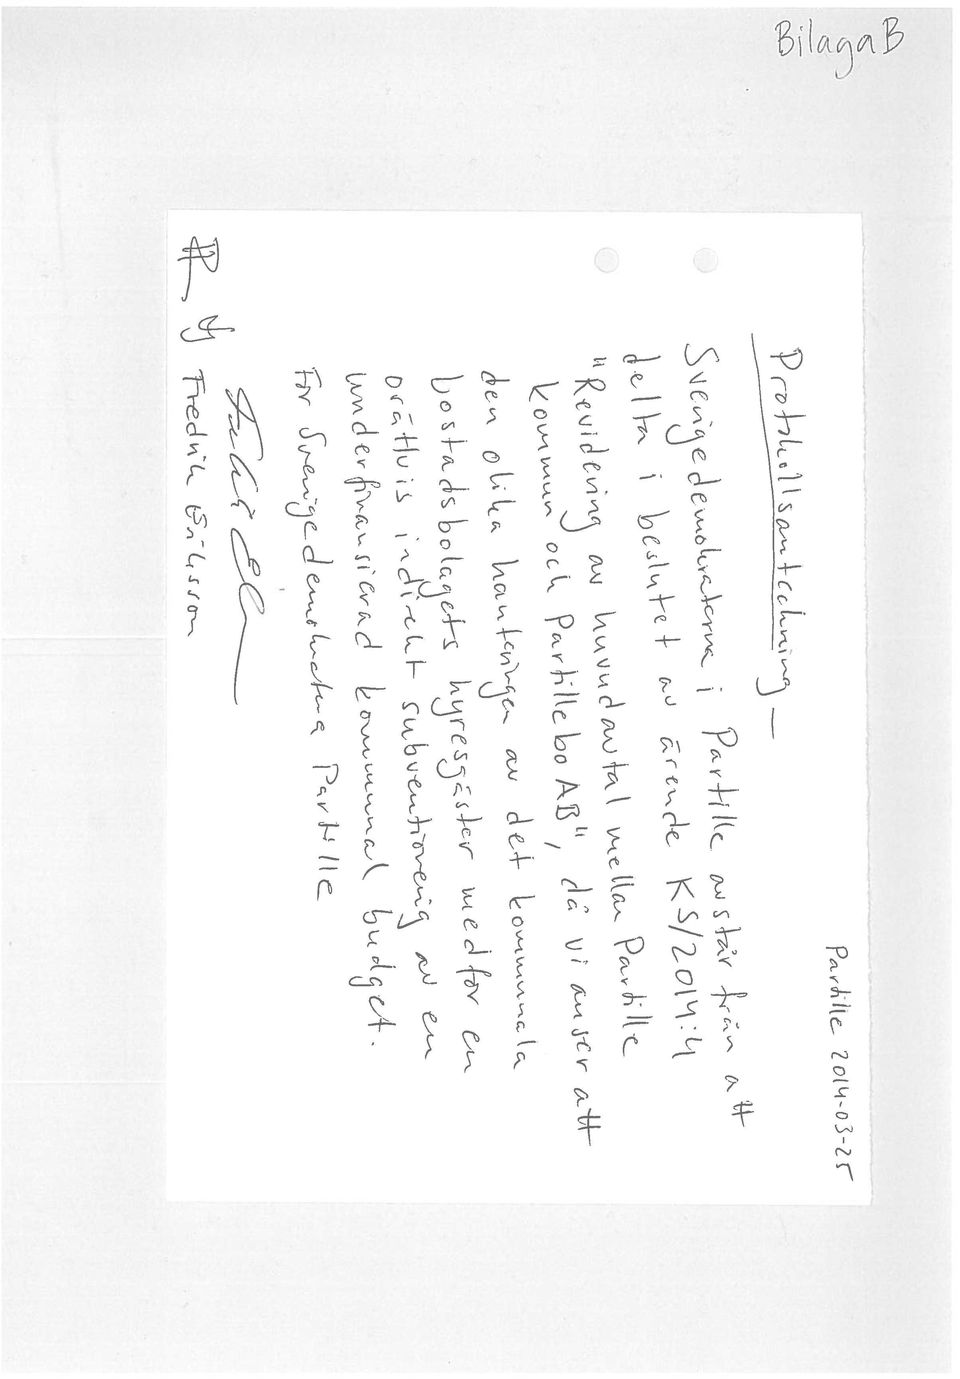 Bilaga B
Partille 2014-03-25
Protokollsanteckning
Sverigedemokraterna i Partille avstår från att
delta i beslutet av ärende KS/2014:4
"Revidering av huvudavtal mellan Partille
kommun och Partillebo AB", då vi anser att
den olika hanteringen av det kommunala
bostadsbolagets hyresgäster medför en
orättvis indirekt subventionering av en
underfinansierad kommunal budget.
För Sverigedemokraterna Partille
Fredrik Eriksson